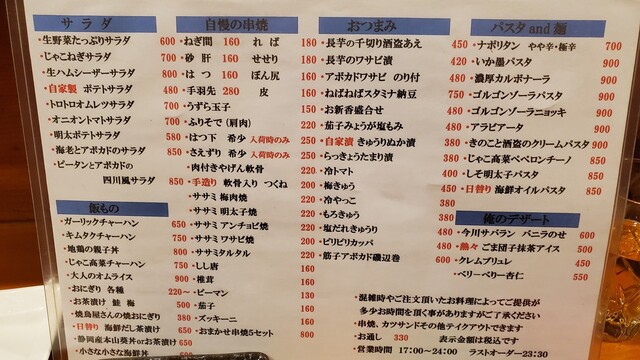 サラダ
・生野菜たっぷりサラダ 600
・じゃこねぎサラダ 700
・生ハムシーザーサラダ 800
・自家製 ポテトサラダ 480
・トロトロオムレツサラダ 700
・オニオントマトサラダ 700
・明太ポテトサラダ 580
・海老とアボカドのサラダ 850
・ピータンとアボカドの
四川風サラダ 850
飯もの
・ガーリックチャーハン 650
・キムタクチャーハン 750
・地鶏の親子丼 800
・じゃこ高菜チャーハン 750
・大人のオムライス 900
・おにぎり 各種 220~
・お茶漬け 鮭 梅 500
・焼鳥屋さんの焼おにぎり 380
・日替り 海鮮だし茶漬け 650
・静岡産本山葵丼orお茶漬け 650
・小さな小さな海鮮丼
自慢の串焼
・ねぎ間 160 ればー 180
・砂肝 160 せせり 180
・はつ 160 ぼん尻 180
・手羽先 280 皮 160
・うずら玉子 150
・ふりそで(肩肉) 220
・はつ下 希少 入荷時のみ 250
・さえずり 希少 入荷時のみ 250
・肉付きやげん軟骨 220
・手造り 軟骨入り つくね 200
・ササミ梅肉焼 200
・ササミ明太子焼 220
・ササミアンチョビ焼 220
・ササミワサビ焼 200
・ササミタルタル 220
・しし唐 160
・椎茸 160
・ピーマン 130
・茄子 160
・ズッキーニ 160
・おまかせ串焼5セット 800
おつまみ
・長芋の千切り酒盗あえ 450
・長芋のワサビ漬 420
・アボカドワサビ のり付 480
・ねばねばスタミナ納豆 750
・お新香盛合せ 480
・茄子みょうが塩もみ 480
・自家漬 きゅうりぬか漬 380
・らっきょうたまり漬 380
・冷トマト 400
・梅きゅう 450
・冷やっこ 380
・もろきゅう 380
・塩だれきゅうり 480
・ピリピリカッパ 480
・筋子アボカド磯辺巻 600
パスタand麺
・ナポリタン やや辛・極辛 700
・いか墨パスタ 900
・濃厚カルボナーラ 900
・ゴルゴンゾーラパスタ 900
・ゴルゴンゾーラニョッキ 900
・アラビアータ 900
・きのこと酒盗のクリームパスタ 900
・じゃこ高菜ペペロンチーノ 850
・しそ明太子パスタ 850
・日替り 海鮮オイルパスタ 850
俺のデザート
・今川サバラン バニラのせ 600
・熱々 ごま団子抹茶アイス 500
・クレームブリュレ 450
・ベリーベリー杏仁 550
・混雑時やご注文頂いたお料理によってご提供が
多少お時間を頂く事がありますがご了承ください
・串焼、カツサンドその他テイクアウトできます
・お通し 330 表示金額は税込です
・営業時間 17:00~24:00 ラスオーダー23:30